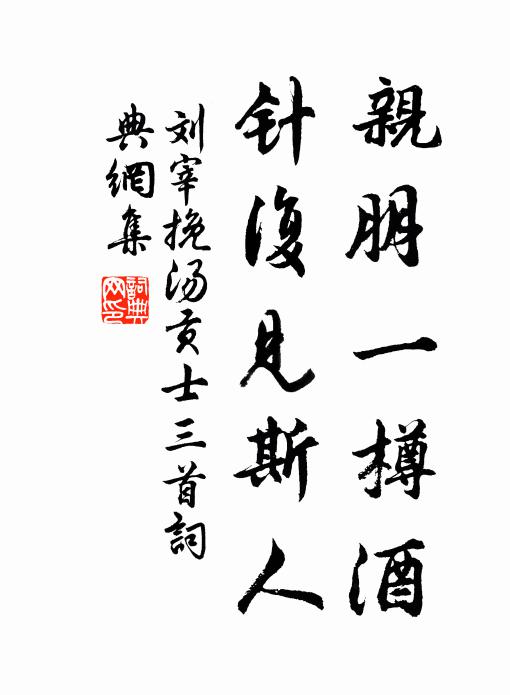 親朋一樽酒
针復見斯人
刘宰挽汤贡士三首詞
典網集
詞典网印